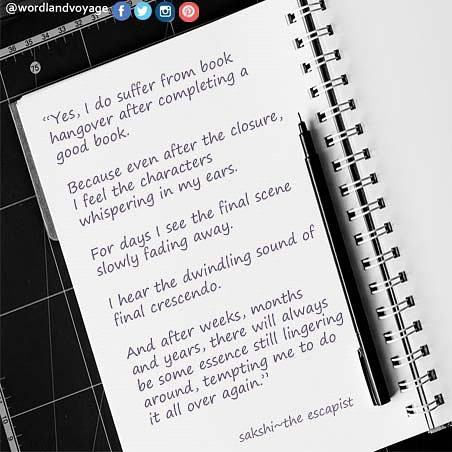 @wordlandvoyage
36 35 34 33 32 31 30
75
“Yes, I do suffer from book
hangover after completing a
good book.
Because even after the closure,
I feel the characters
whispering in my ears.
For days I see the final scene
slowly fading away.
I hear the dwindling sound of
final crescendo.
And after weeks, months
and years, there will always
be some essence still lingering
around, tempting me to do
it all over again.”
sakshi~the escapist